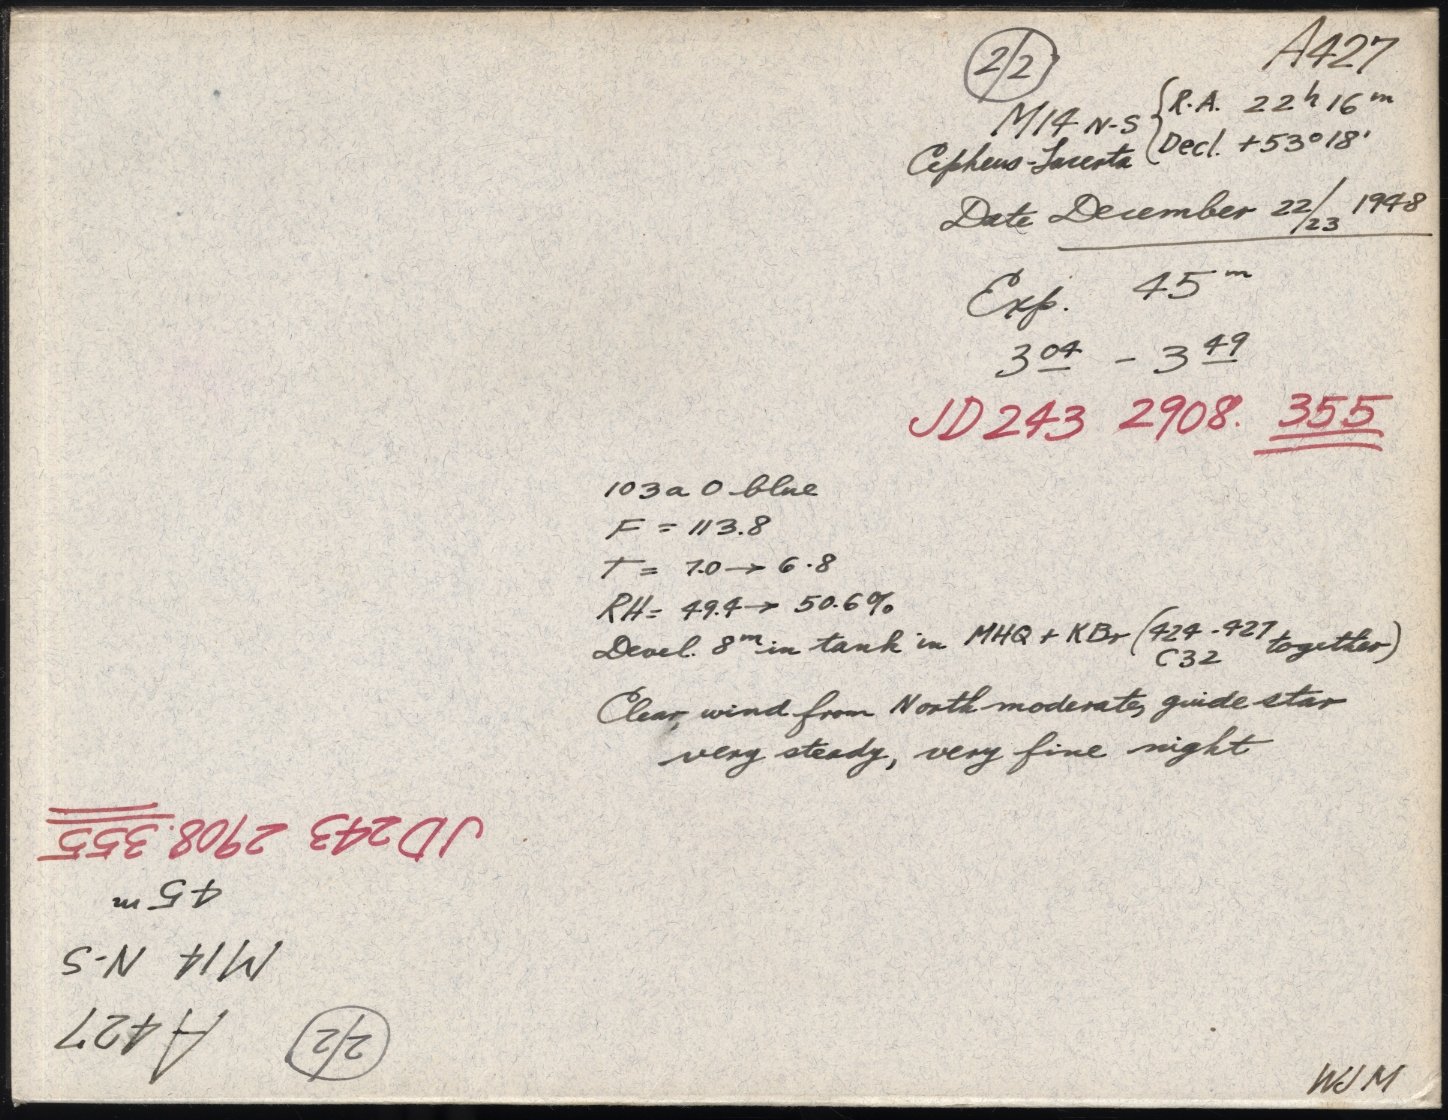 2/2
A427
M14 N-S { R.A. 22h 16m
Cepheus-Lacerta Decl. +53°18'
Date December 22/23 1948
Exp. 45m
3 04 - 3 49
JD 243 2908. 355
103a O blue
F = 113.8
T = 7.0 → 6.8
RH = 49.4 → 50.6%
Devel. 8m in tank in MHQ + KBr (424-427 together)
C32
Clear, wind from North moderate, guide star
very steady, very fine night
JD 243 2908.355
45m
M14 N-S
A427
2/2
WJM